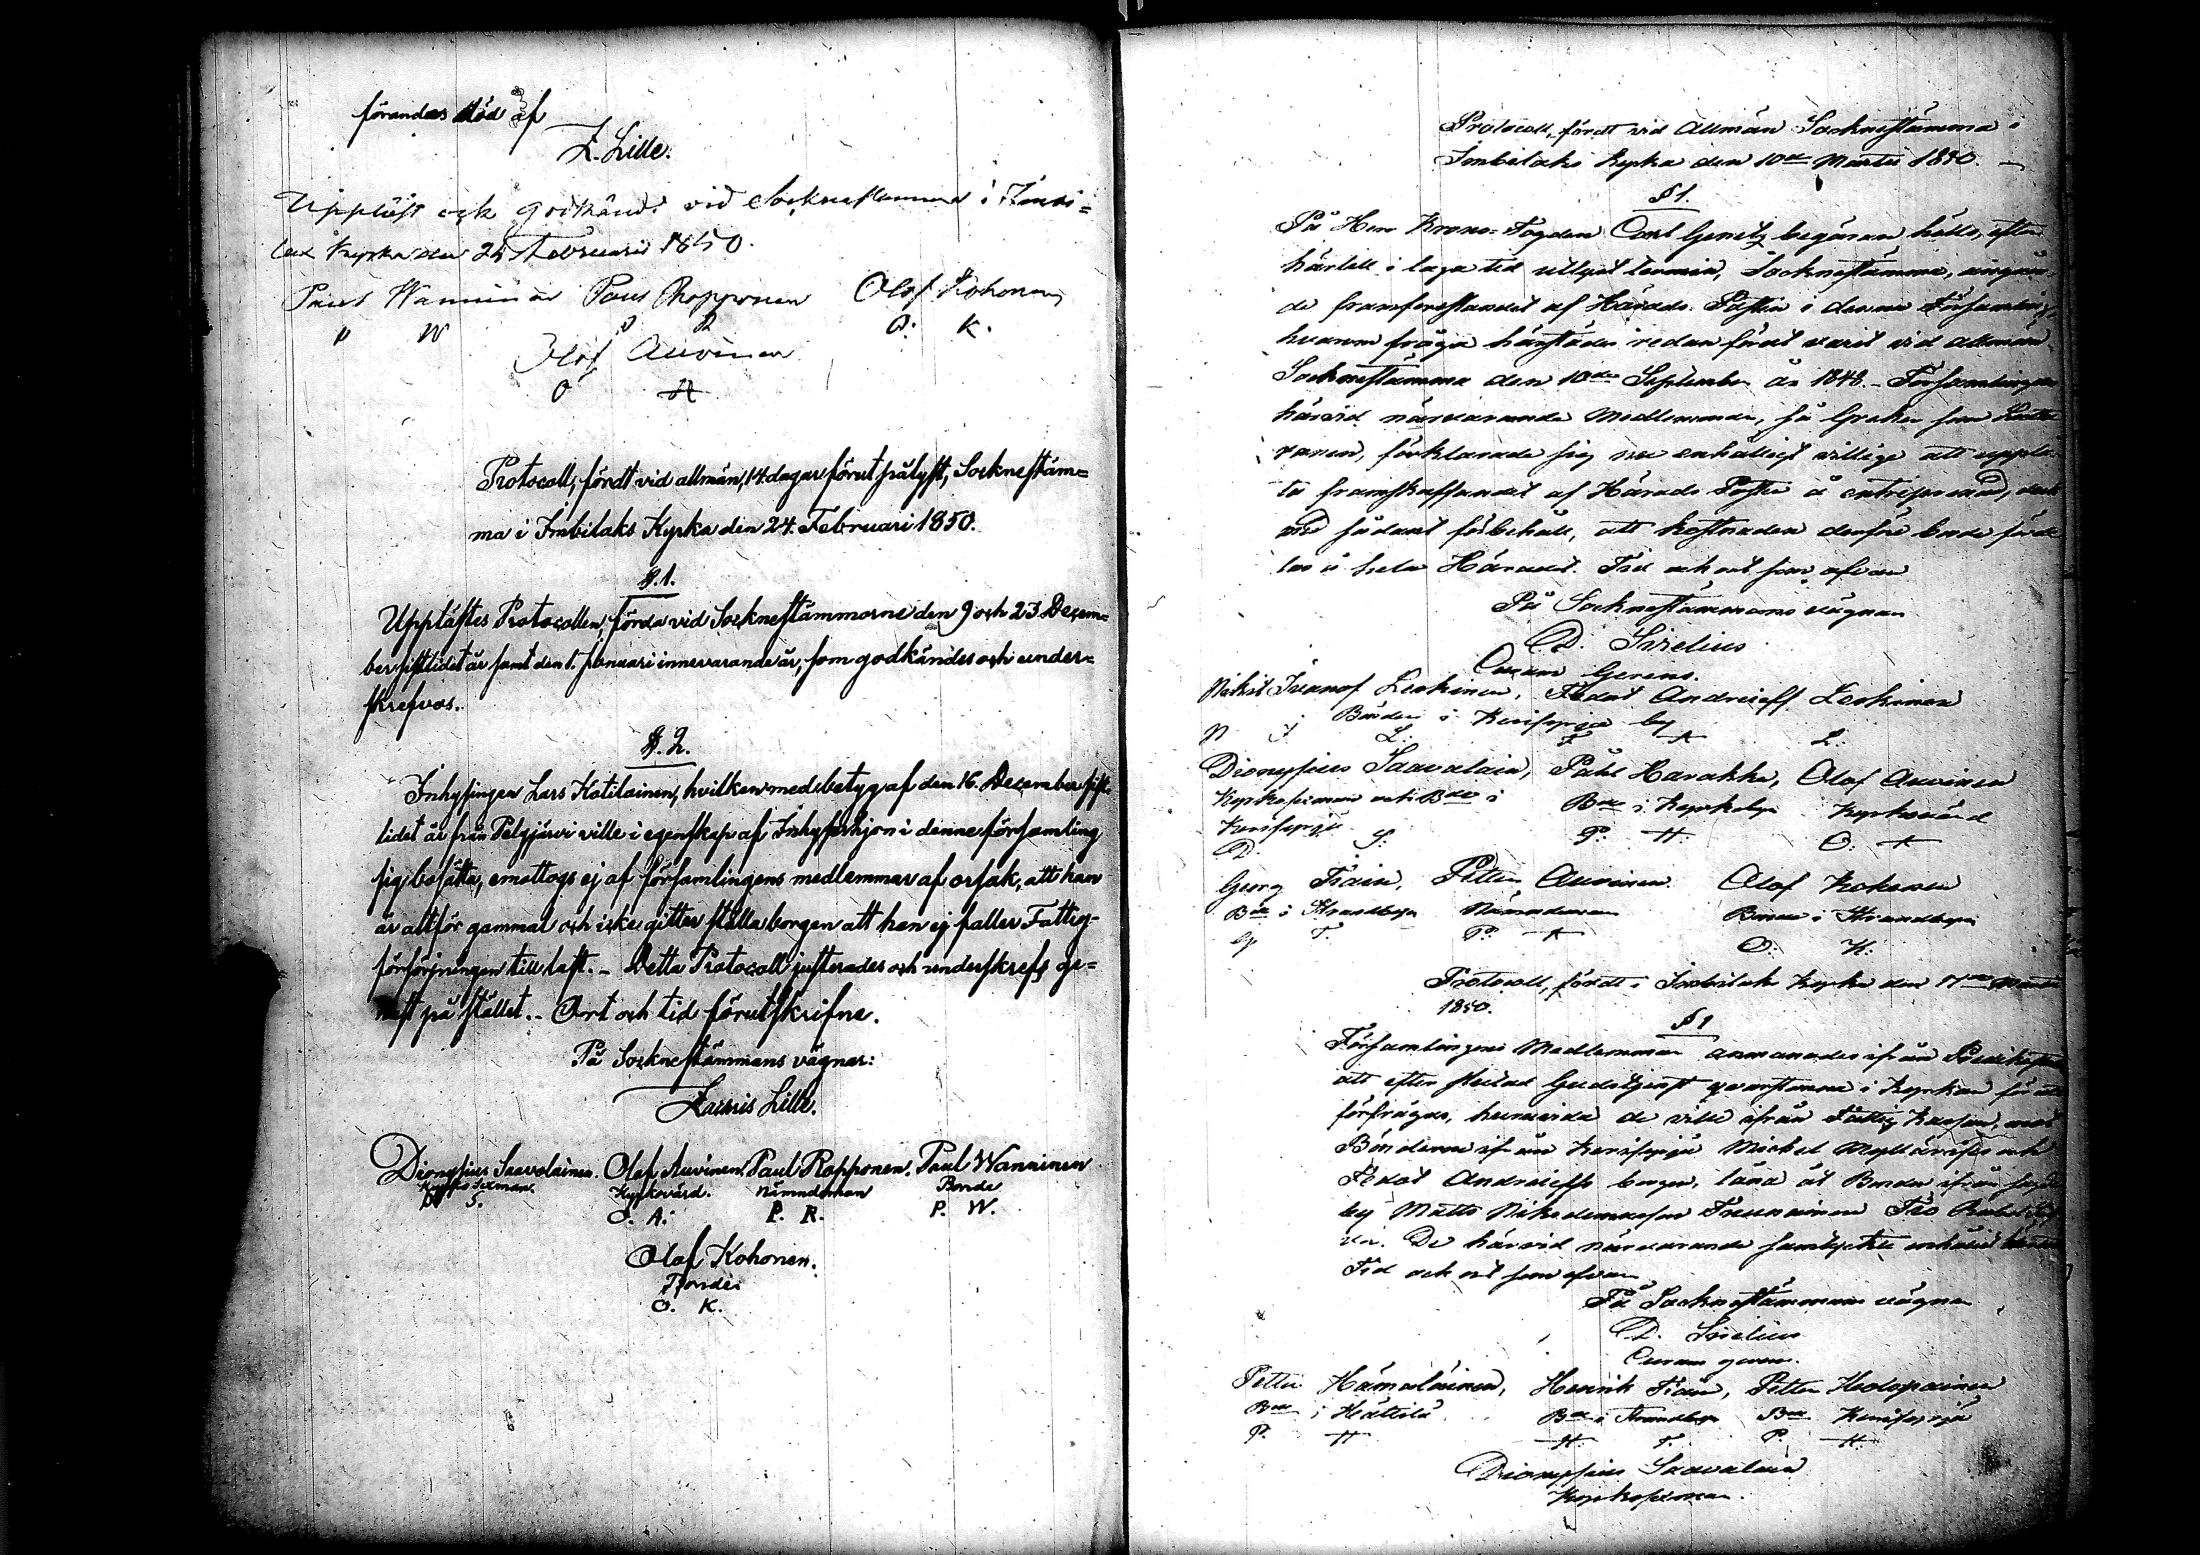 förandes död af
Z. Lille.
Uppläst och godkänds vid Sockneftamma i Imbi=
lax Kyrka den 24 Februari 1850.
Paul Wanninen Paul Ropponen Olof Kohonen
P W P R O. K.
Olof Auvinen
O A
Protocoll, fördt vid allmän, 14 dagar förut pålyst, Socknestäm=
ma i Imbilaks Kyrka den 24. Februari 1850.
§. 1.
Upplästes Protocollen, förda vid Socknestämmorne den 9 och 23. Decem=
ber sistlidet år samt den 1. Januari innevarande år, som godkändes och under=
skrefvos.
§. 2.
Inhysingen Lars Kotilainen, hvilken med betyg af den 16. December sist=
lidet år från Pelgjärvi ville i egenskap af Inhyseshjon i denne församling
sig bosätta, emottogs ej af församlingens medlemmar af orsak, att han
är altför gammal och icke gitter ställa borgen att han ej faller Fattig-
försörjningen till last. - Detta Protocoll justerades och underskrefs ge=
nast på stället. - Ort och tid förutskrifne.
På Socknestämmans vägnar:
Zacris Lille.
Dionysius Saavolainen. Olof Auvinen. Paul Ropponen. Paul Wanninen
Kyrko Sexman. Kyrkovärd. Nämndeman Bonde
D S. O. A. P. R. P. W.
Olof Kohonen.
Bonde
O. K.
Protocoll, fördt vid Allmän Socknestämma i
Imbilaks Kyrka den 10de Martii 1850.
§ 1.
På Herr Krono-Fogden Carl Genetz begäran hölls, efter
härtill i laga tid utlyst termin, Socknestämma, angåen-
de framforslandet af Härads Posten i denna Församling,
hvarom fråga härstädes redan förut varit vid allmän
Socknestämma den 10de September år 1848. - Församlingens
härvid närvarande Medlemmar, så Greker som Luthe
raner, förklarade sig nu enhälligt villige att uppla-
ta framskaffandet af Härads Posten å entreprenad, dock
med sådant förbehåll, att kostnaden derföre borde förde
las å hela Häradet. Tid och ort som ofvan
På Socknestämmans vägnar
D. Sirelius
Curam Gerens.
Nikit Ivanof Leskinen, Fedot Andreieff Leskinen
Bönder i Kerisyrjä by
N I L. F A L.
Dionysius Saavalain, Påhl Harakka, Olof Auvinen
Kyrkosexman och Bde i Bde i Kyrkoby Kyrkovärd
Kerisyrjä
D. S. P. H. O. A
Georg Tiain, Petter Auvinen Olof Kokonen
Bde i Strandby Nämndeman Bonde i Strandby
G T. P. A O. K.
Protocoll, fördt i Imbilaks Kyrka den 17de Martii
1850.
§ 1
Församlingens Medlemmar anmanades ifrån Predikstolen
att efter slutad Gudstjenst qvarstanna i Kyrkan för att
förfrågas, huruvida de ville ifrån Fattig Kassan, mot
Bönderne ifrån Kerisyrjä Mickel och
Fedot Andreieffs borgen, låna åt Bonden ifrån
by Matts Tio Rubel
ver. De härvid närvarande samtyckte enhälligt
Tid och ort som ofvan
På Socknestämmans vägnar
D. Sirelius
Curam gerens.
Petter Hämäläinen, Henrik Tiain, Petter Holopainen
Bde i Hättelä Bde i Strandby Bde Kerisyrjä
P. H H. T. P. H.
Dionysius Saavalain
Kyrkosexman.